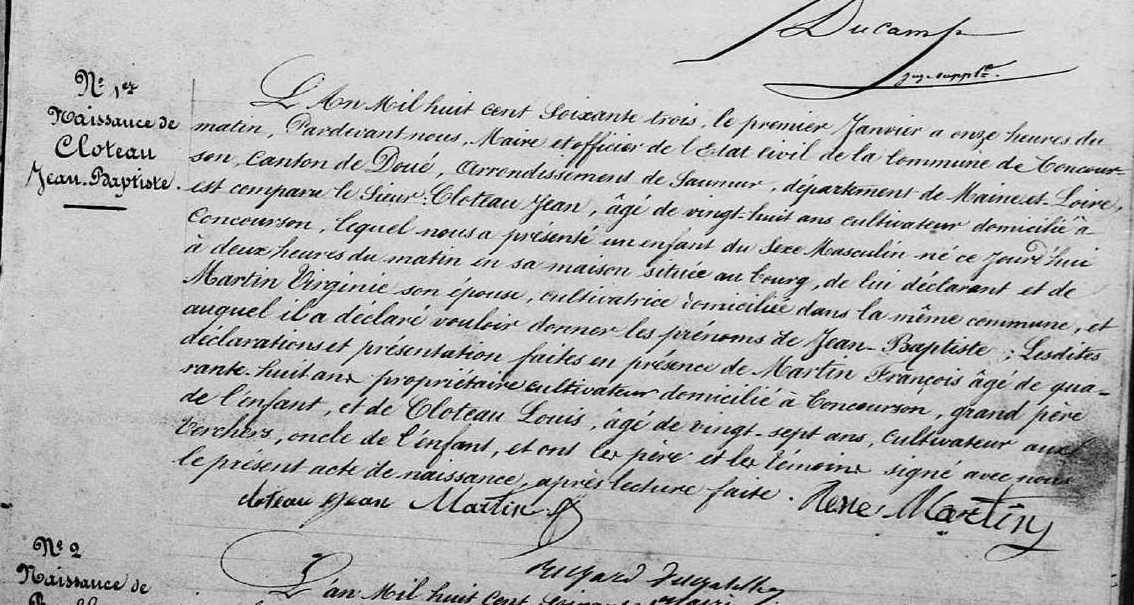 Ducamp
Juge suppl^t.
N° 1er
Naissance de
Cloteau
Jean-Baptiste.
L'An Mil huit cent Soixante trois, le premier Janvier a onze heures du
matin, Pardevant nous, Maire et officier de l'Etat civil de la Commune de Concour-
son, Canton de Doué, Arrondissement de Saumur, département de Maine-et-Loire,
est comparu le Sieur Cloteau Jean, âgé de vingt-huit ans cultivateur domicilié à
Concourson, lequel nous a présenté un enfant du Sexe Masculin né ce jourd'hui
à deux heures du matin en sa maison située au bourg, de lui déclarant et de
Martin Virginie son épouse, cultivatrice domiciliée dans la même commune, et
auquel il a déclaré vouloir donner les prénoms de Jean-Baptiste ; Lesdites
déclarations et présentation faites en présence de Martin François âgé de qua-
rante-huit ans propriétaire cultivateur domicilié à Concourson, grand père
de l'enfant, et de Cloteau Louis, âgé de vingt-sept ans, cultivateur aux
Verchers, oncle de l'enfant, et ont les père et les témoins signé avec nous
le présent acte de naissance, après lecture faite.
cloteau jean Martin René Martin
N° 2
Naissance de
L'an Mil huit cent